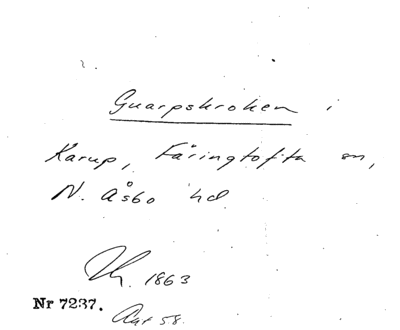 Guarpskroken i
Karup, Färingtofta sn,
N. Åsbo hd
1863
Nr 7237.
Avt 58.